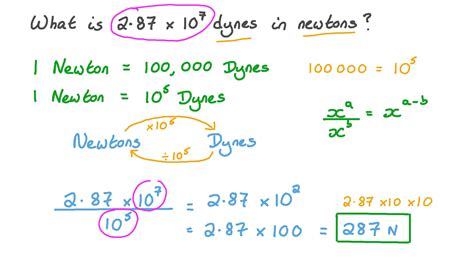 What is 2.87 × 10⁷ dynes in newtons?
1 Newton = 100,000 Dynes
100 000 = 10⁵
1 Newton = 10⁵ Dynes
xᵃ / xᵇ = xᵃ⁻ᵇ
×10⁵
Newtons Dynes
÷10⁵
2.87 × 10⁷ / 10⁵ = 2.87 × 10²
2.87 × 10 × 10
= 2.87 × 100 = 287 N